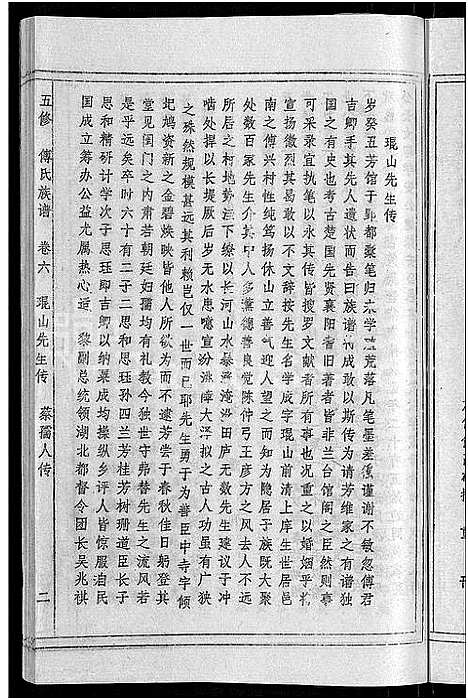 琨山先生传
岁癸五芳馆于鄂都橐笔归末学荒落凡笔墨差役谨谢不敏忽傅君
吉卿手其先人遗状而告曰族谱将成敢以斯传为请芳维家之有谱独
国之有史也考古楚国先贤襄阳耆旧著者皆非兰台馆阁之臣然则事
可采录宣执笔以永其传皆搜罗文献者所有事也况重之以婚姻乎特
宣扬徽烈其曷敢以不文辞按先生名学成字琨山前清上庠生世居邑
南之傅兴村性纯笃扬休山立善气迎人望之而知为隐居子族既大聚
处数百家先生介其中人多薰德善良党陈仲弓王彦方之风去人不远
所居之村地势洼下缭以长河山水暴涨淹没田庐无数先生建议于冲
啮处捍以长堤厥后岁无水患噫宣纷泳障大泽拟之古人功虽有广狭
之殊然规模甚远其利赖岂仅一世而已耶先生勇于为善邑中寺宇倾
圮鸠资新之金碧焕映皆他人所欲为而不逮芳尝于春秋佳日躬登其
堂见闺门之内肃若朝廷妇孺均有礼教今独世守弗替先生之流风若
是乎远矣卒时六十有二子二思和思珏孙四兰芳桂芳树珊道臣长子
思和精研计学次子思珏即吉卿以纳粟成均操纵乡评人皆惊服洎民
国成立筹办公益尤属热心适 黎副总统领湖北都督令团长吴兆祺
五修 傅氏族谱 卷六 琨山先生传 蔡孺人传 二